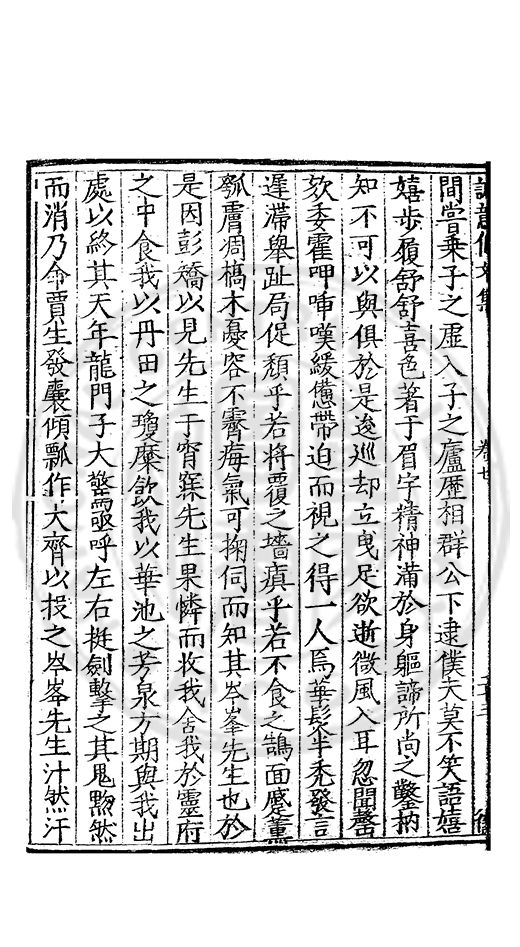 間嘗乗子之虛入子之廬歷相群公下逮僕夫莫不笑語嬉
嬉步履舒舒喜色著于眉字精神滿於身軀諦所尚之鑿枘
知不可以與俱於是逡巡却立曳足欲逝微風入耳忽聞罄
欬委霍呻喟嘆緩憊帶迫而視之得一人焉華髪半禿發言
遲滯舉趾局促頹乎若將覆之墻瘨乎若不食之鵠面感薰
瓠膚凋槁木憂容不霽痗氣可掬伺而知其岑峯先生也於
是因彭矯以見先生于窅寐先生果憐而收我舍我於靈府
之中食我以丹田之瓊糜飲我以華池之芳泉方期與我出
處以終其天年龍門子大驚亟呼左右挺劍擊之其鬼黝然
而消乃命賈生發囊傾瓢作大齊以投之岑峯先生汁然汗